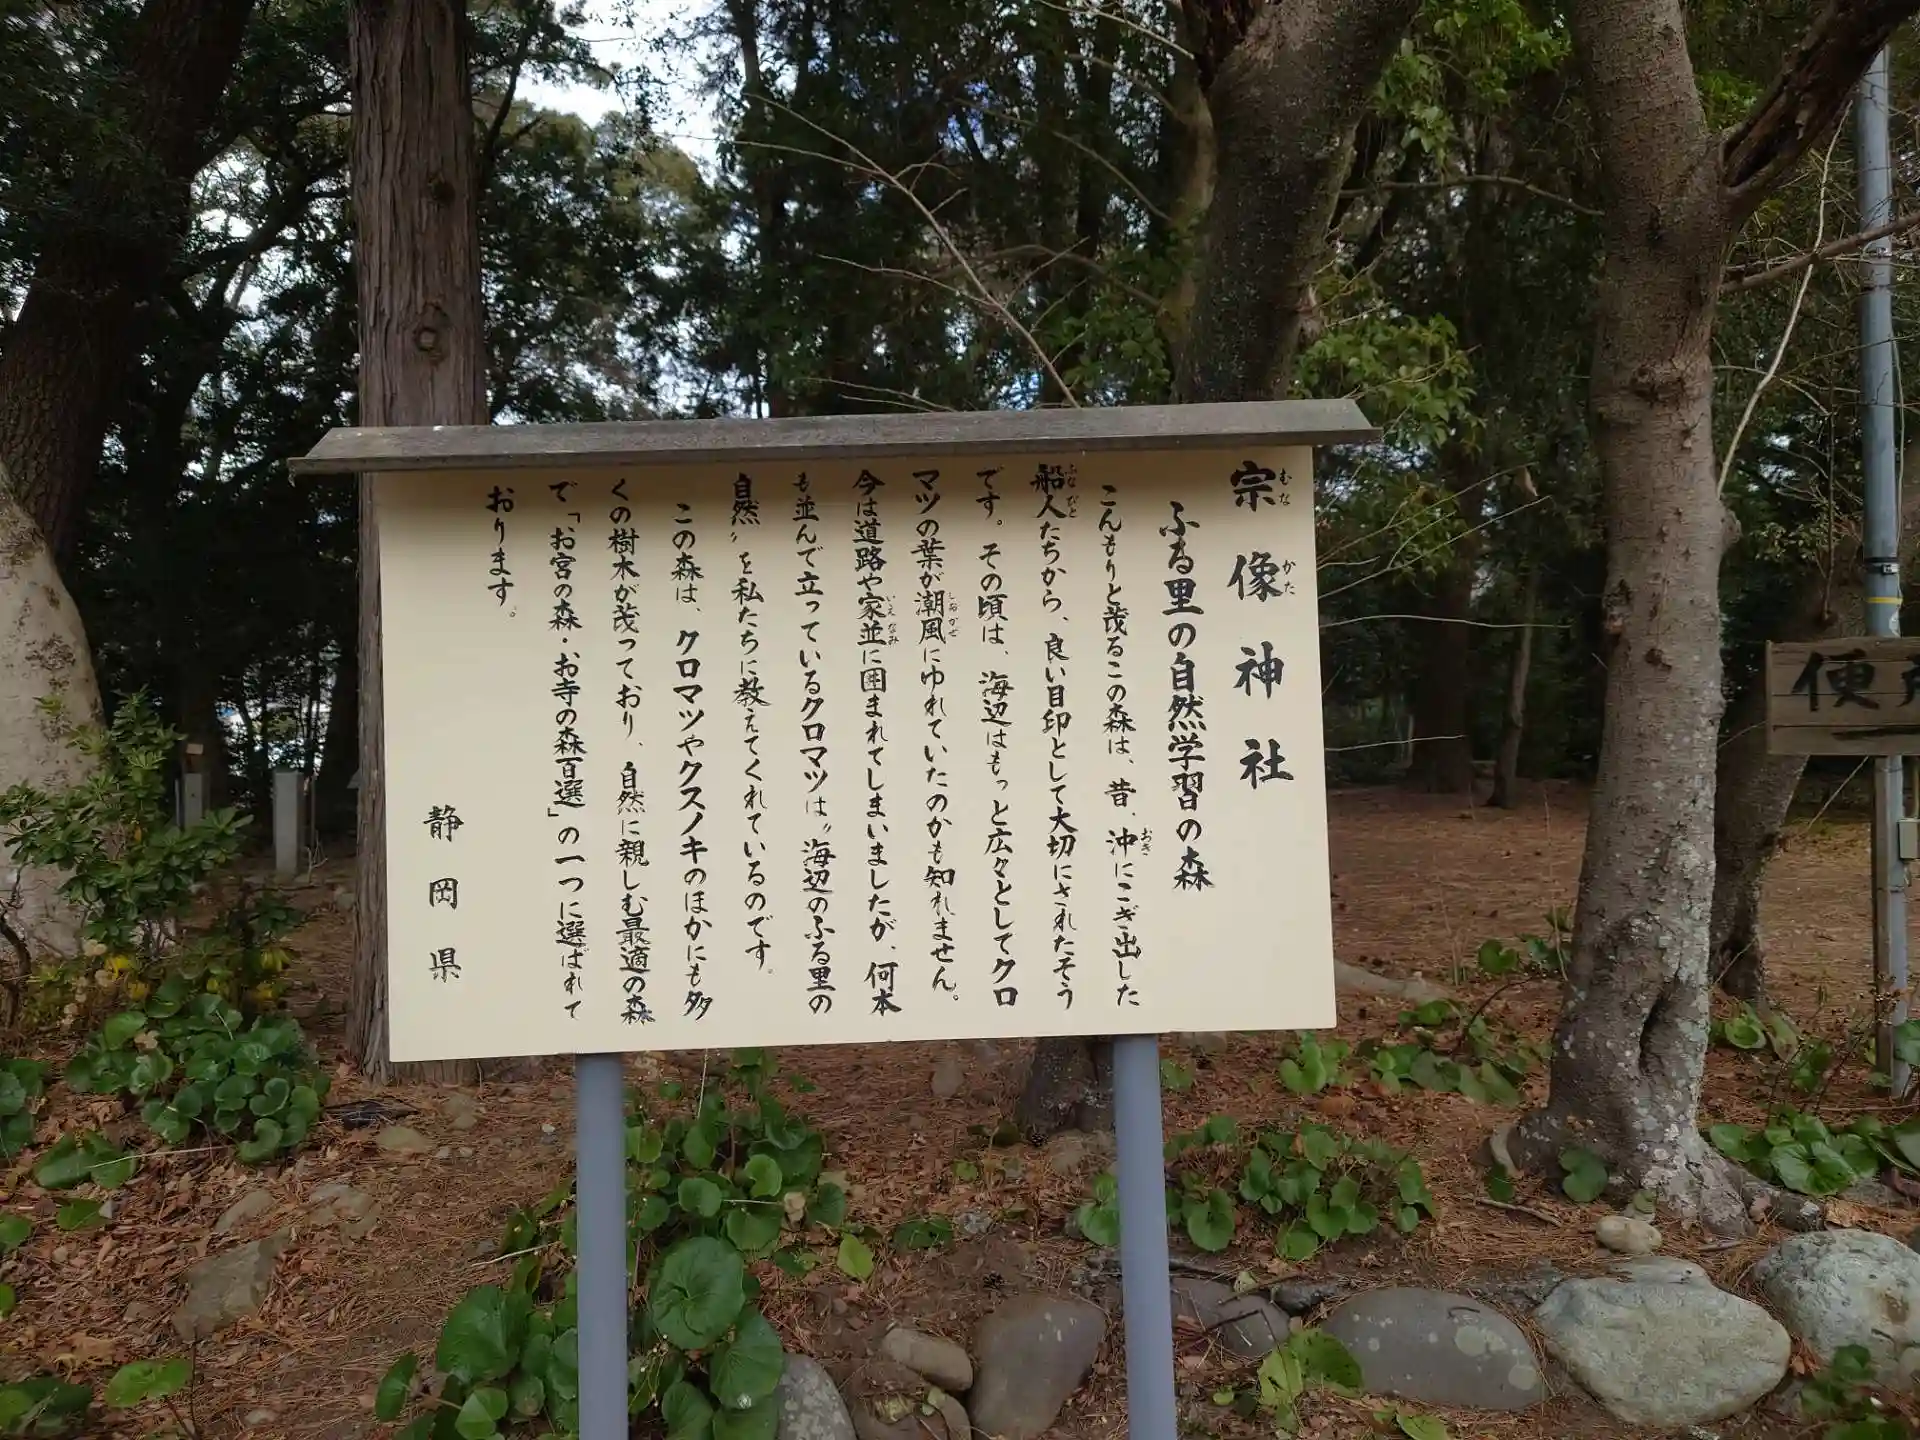 宗像神社
むなかた
ふる里の自然学習の森
こんもりと茂るこの森は、昔、沖にこぎ出した
おき
船人たちから、良い目印として大切にされたそう
ふなびと
です。その頃は、海辺はもっと広々としてクロ
マツの葉が潮風にゆれていたのかも知れません。
しおかぜ
今は道路や家並に囲まれてしまいましたが、何本
いえなみ
も並んで立っているクロマツは〝海辺のふる里の
自然〟を私たちに教えてくれているのです。
この森は、クロマツやクスノキのほかにも多
くの樹木が茂っており、自然に親しむ最適の森
で「お宮の森・お寺の森百選」の一つに選ばれて
おります。
静岡県
便所